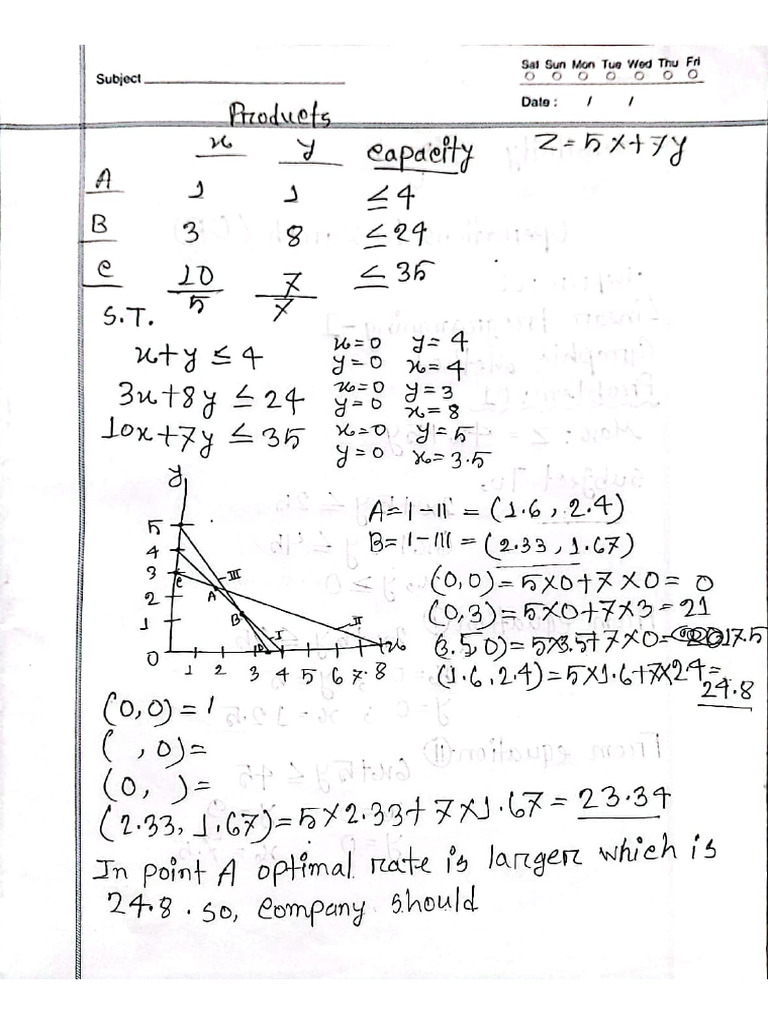 Sat Sun Mon Tue Wed Thu Fri
Subject
Date : / /
Products
x y capacity Z = 5x+7y
A 1 1 ≤ 4
B 3 8 ≤ 24
C 10 7 ≤ 35
5 7
S.T.
x+y ≤ 4 x=0 y=4
y=0 x=4
3x+8y ≤ 24 x=0 y=3
y=0 x=8
10x+7y ≤ 35 x=0 y=5
y=0 x=3.5
y
5
4
3
2
1
0 1 2 3 4 5 6 7 8
x
C A B I II III
A = I-II = (1.6, 2.4)
B = I-III = (2.33, 1.67)
(0,0) = 5×0+7×0 = 0
(0,3) = 5×0+7×3 = 21
(3.5,0) = 5×3.5+7×0 = 17.5
(1.6,2.4) = 5×1.6+7×2.4 =
24.8
(0,0) = 1
( ,0) =
(0, ) =
(2.33, 1.67) = 5×2.33+7×1.67 = 23.34
In point A optimal rate is larger which is
24.8. so, company should